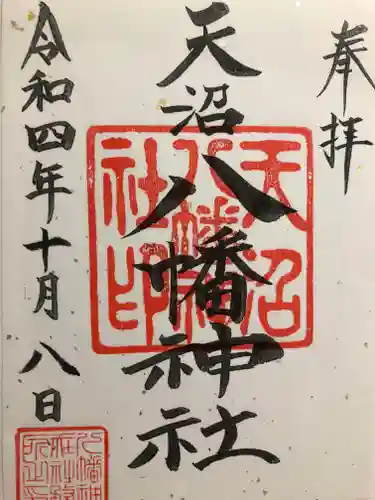 奉拝
天沼八幡神社
令和四年十月八日
天沼八幡神社印